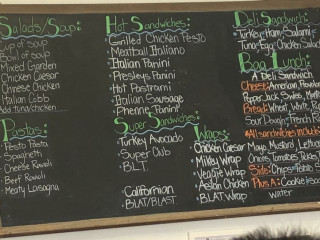 Salads/Soup:
Cup of soup
Bowl of soup
Mixed Garden
Chicken Caesar
Chinese Chicken
Italian Cobb
Add tuna/chicken
Pastas:
Pesto Pasta
Spaghetti
Cheese Ravioli
Beef Ravioli
Meaty Lasagna
Hot Sandwiches:
Grilled Chicken Pesto
Meatball Italiano
Italian Panini
Presleys Panini
Hot Pastrami
Italian Sausage
Phenne Panini
Super Sandwiches:
Turkey Avocado
Super Club
B.L.T.
Californian
BLAT/BLAST
Wraps:
Chicken Caesar
Milky Wrap
Veggie Wrap
Asian Chicken
BLAT Wrap
Deli Sandwich:
Turkey, Ham, Salami
Tuna, Egg, Chicken Salad
Bag Lunch:
A Deli Sandwich
Cheese: American, Provolone
Pepper Jack, Swiss,
Bread: Wheat, White, Rye
Sour Dough, French R
*All sandwiches include:
Mayo, Mustard, Lettuce
Onions, Tomatoes,
Side: Chips, Potato
Plus A: Cookie &
Water